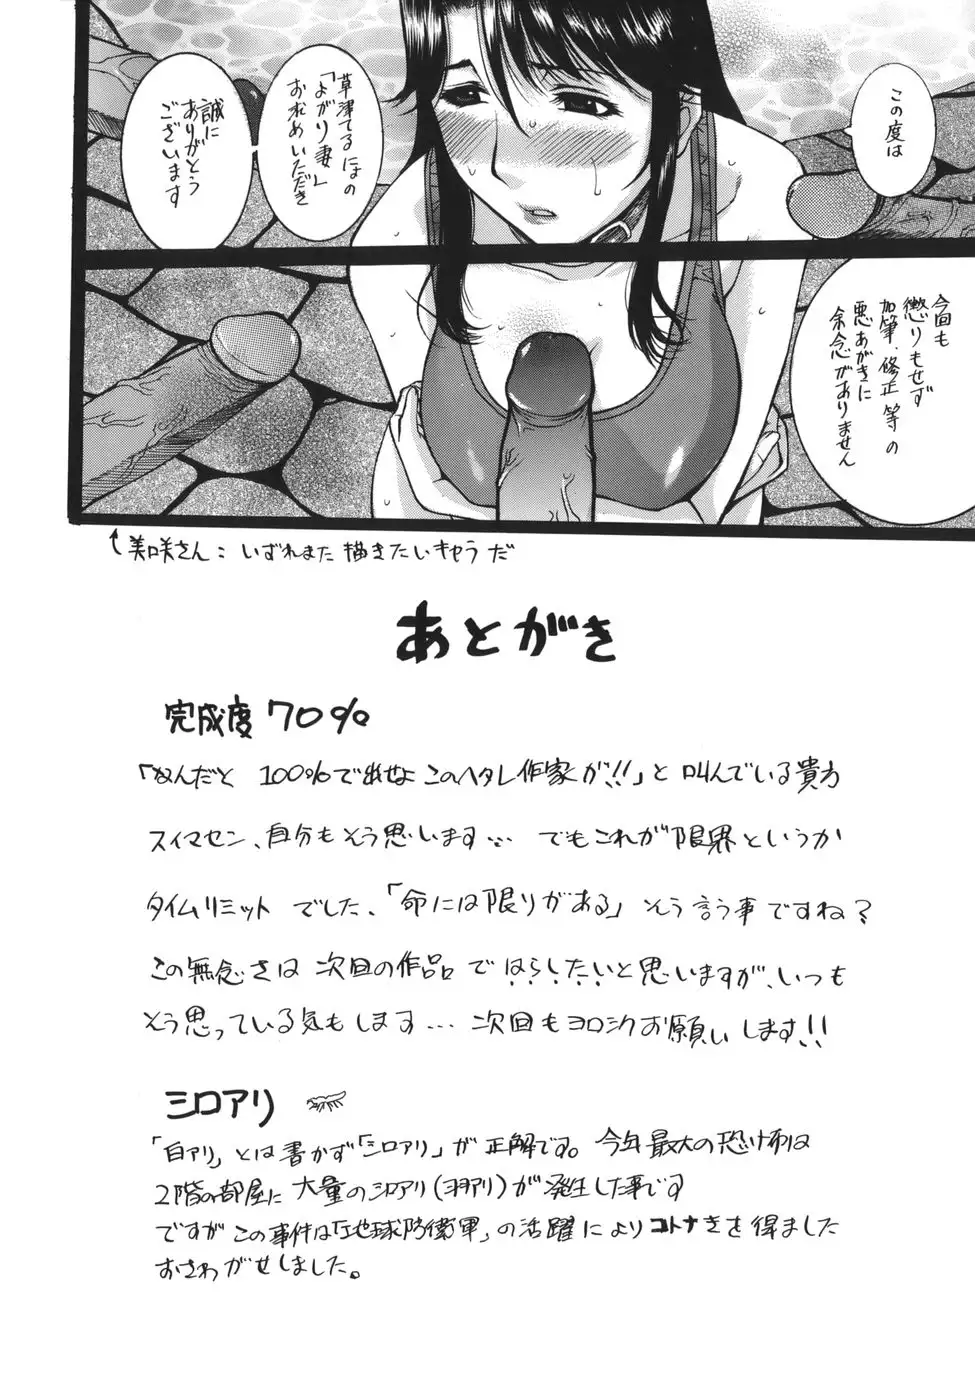 この度は
草津てるにょの
「よがり妻」
お求めいただき
誠に
ありがとう
ございます
今回も
懲りもせず
加筆、修正等の
悪あがきに
余念がありません
美咲さん：いずれまた描きたいキャラだ
あとがき
完成度70%
「なんだと 100%で出せよこのヘタレ作家が!!」と叫んでいる貴方
スイマセン、自分もそう思います… でもこれが限界というか
タイムリミットでした、「命には限りがある」そう言う事ですね?
この無念さは次回の作品ではらしたいと思いますが、いつも
そう思っている気もします…次回もヨロシクお願いします!!
シロアリ
「白アリ」とは書かず「シロアリ」が正解です。今年最大の恐怖は
2階の部屋に大量のシロアリ(ヨヨアリ)が発生した事です
ですがこの事件は「地球防衛軍」の活躍によりコトナきを得ました
おさわがせしました。